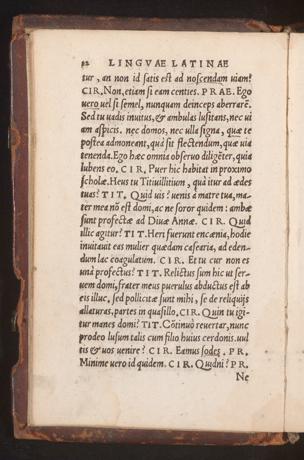 92 LINGVAE LATINAE
tur, an non id satis est ad noscendam uiam?
CIR. Non, etiam si eam centies. PRAE. Ego
uero uel si semel, nunquam deinceps aberrarē.
Sed tu uadis inuitus, & ambulas lusitans, nec ui
am aspicis. nec domos, nec ulla signa, quæ te
postea admoneant, quà sit flectendum, quæ uia
tenenda. Ego hæc omnia obseruo diligēter, quia
lubens eo. CIR. Puer hic habitat in proximo
scholæ. Heus tu Titiuillitium, quà itur ad ædes
tuas? TIT. Quid uis? uenis à matre tua, ma-
ter mea nō est domi, ac ne soror quidem: ambæ
sunt profectæ ad Diuæ Annæ. CIR. Quid
illic agitur? TIT. Heri fuerunt encænia, hodie
inuitauit eas mulier quædam casearia, ad eden-
dum lac coagulatum. CIR. Et tu cur non es
unà profectus? TIT. Relictus sum hic ut ser-
uem domi, frater meus puerulus abductus est ab
eis illuc, sed pollicitæ sunt mihi, se de reliquijs
allaturas, partes in quasillo. CIR. Quin tu igi-
tur manes domi? TIT. Cōtinuò reuertar, nunc
prodeo lusum talis cum filio huius cerdonis. uul
tis & uos uenire? CIR. Eamus sodes. PR.
Minime uero id quidem. CIR. Quidni? PR.
Ne